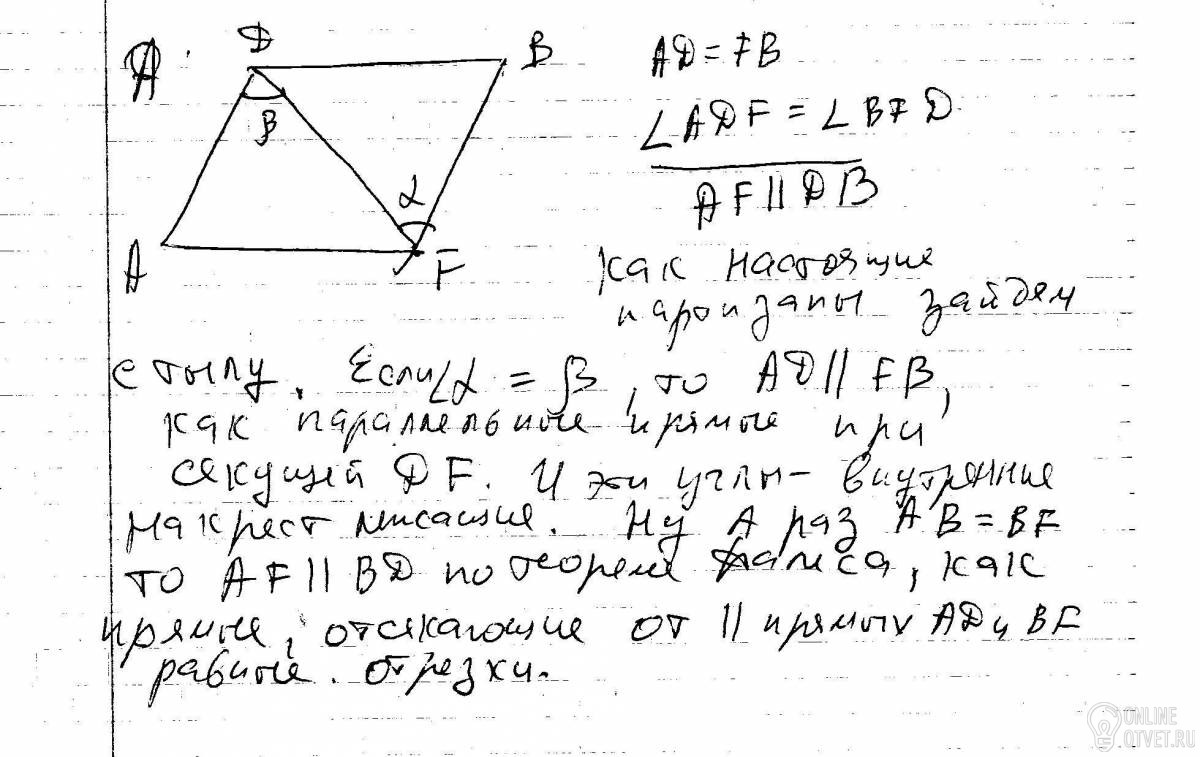 Д
В
А
β
α
А
F
AD = FB
∠ADF = ∠BFD
AF || DB
как настоящие
партизаны зайдем
с тылу. Если ∠α = β, то AD || FB,
как параллельные прямые при
секущей DF. И эти углы - внутренние
накрест лежащие. Ну А раз AB = BF
то AF || BD по теореме Фалеса, как
прямые, отсекающие от || прямых AD и BF
равные отрезки.
ONLINE
OTVET.RU